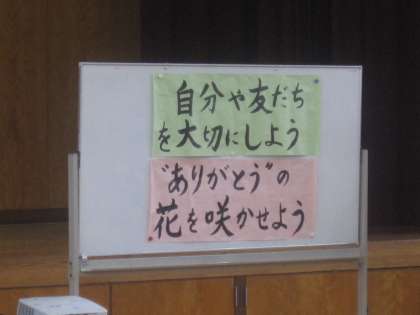 自分や友だち
を大切にしよう
"ありがとう"の
花を咲かせよう